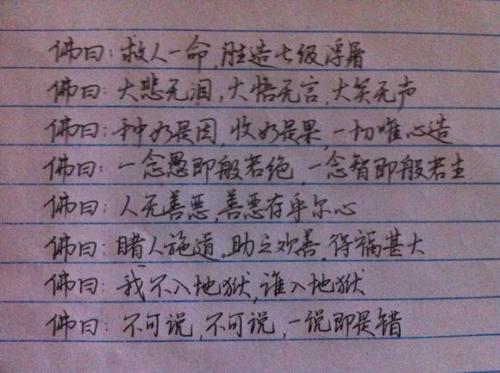 佛曰：救人一命，胜造七级浮屠
佛曰：大悲无泪，大悟无言，大笑无声
佛曰：种如是因，收如是果，一切唯心造
佛曰：一念愚即般若绝 一念智即般若生
佛曰：人无善恶，善恶存乎尔心
佛曰：睹人施道，助之欢善，得祸甚大
佛曰：我不入地狱，谁入地狱
佛曰：不可说，不可说，一说即是错